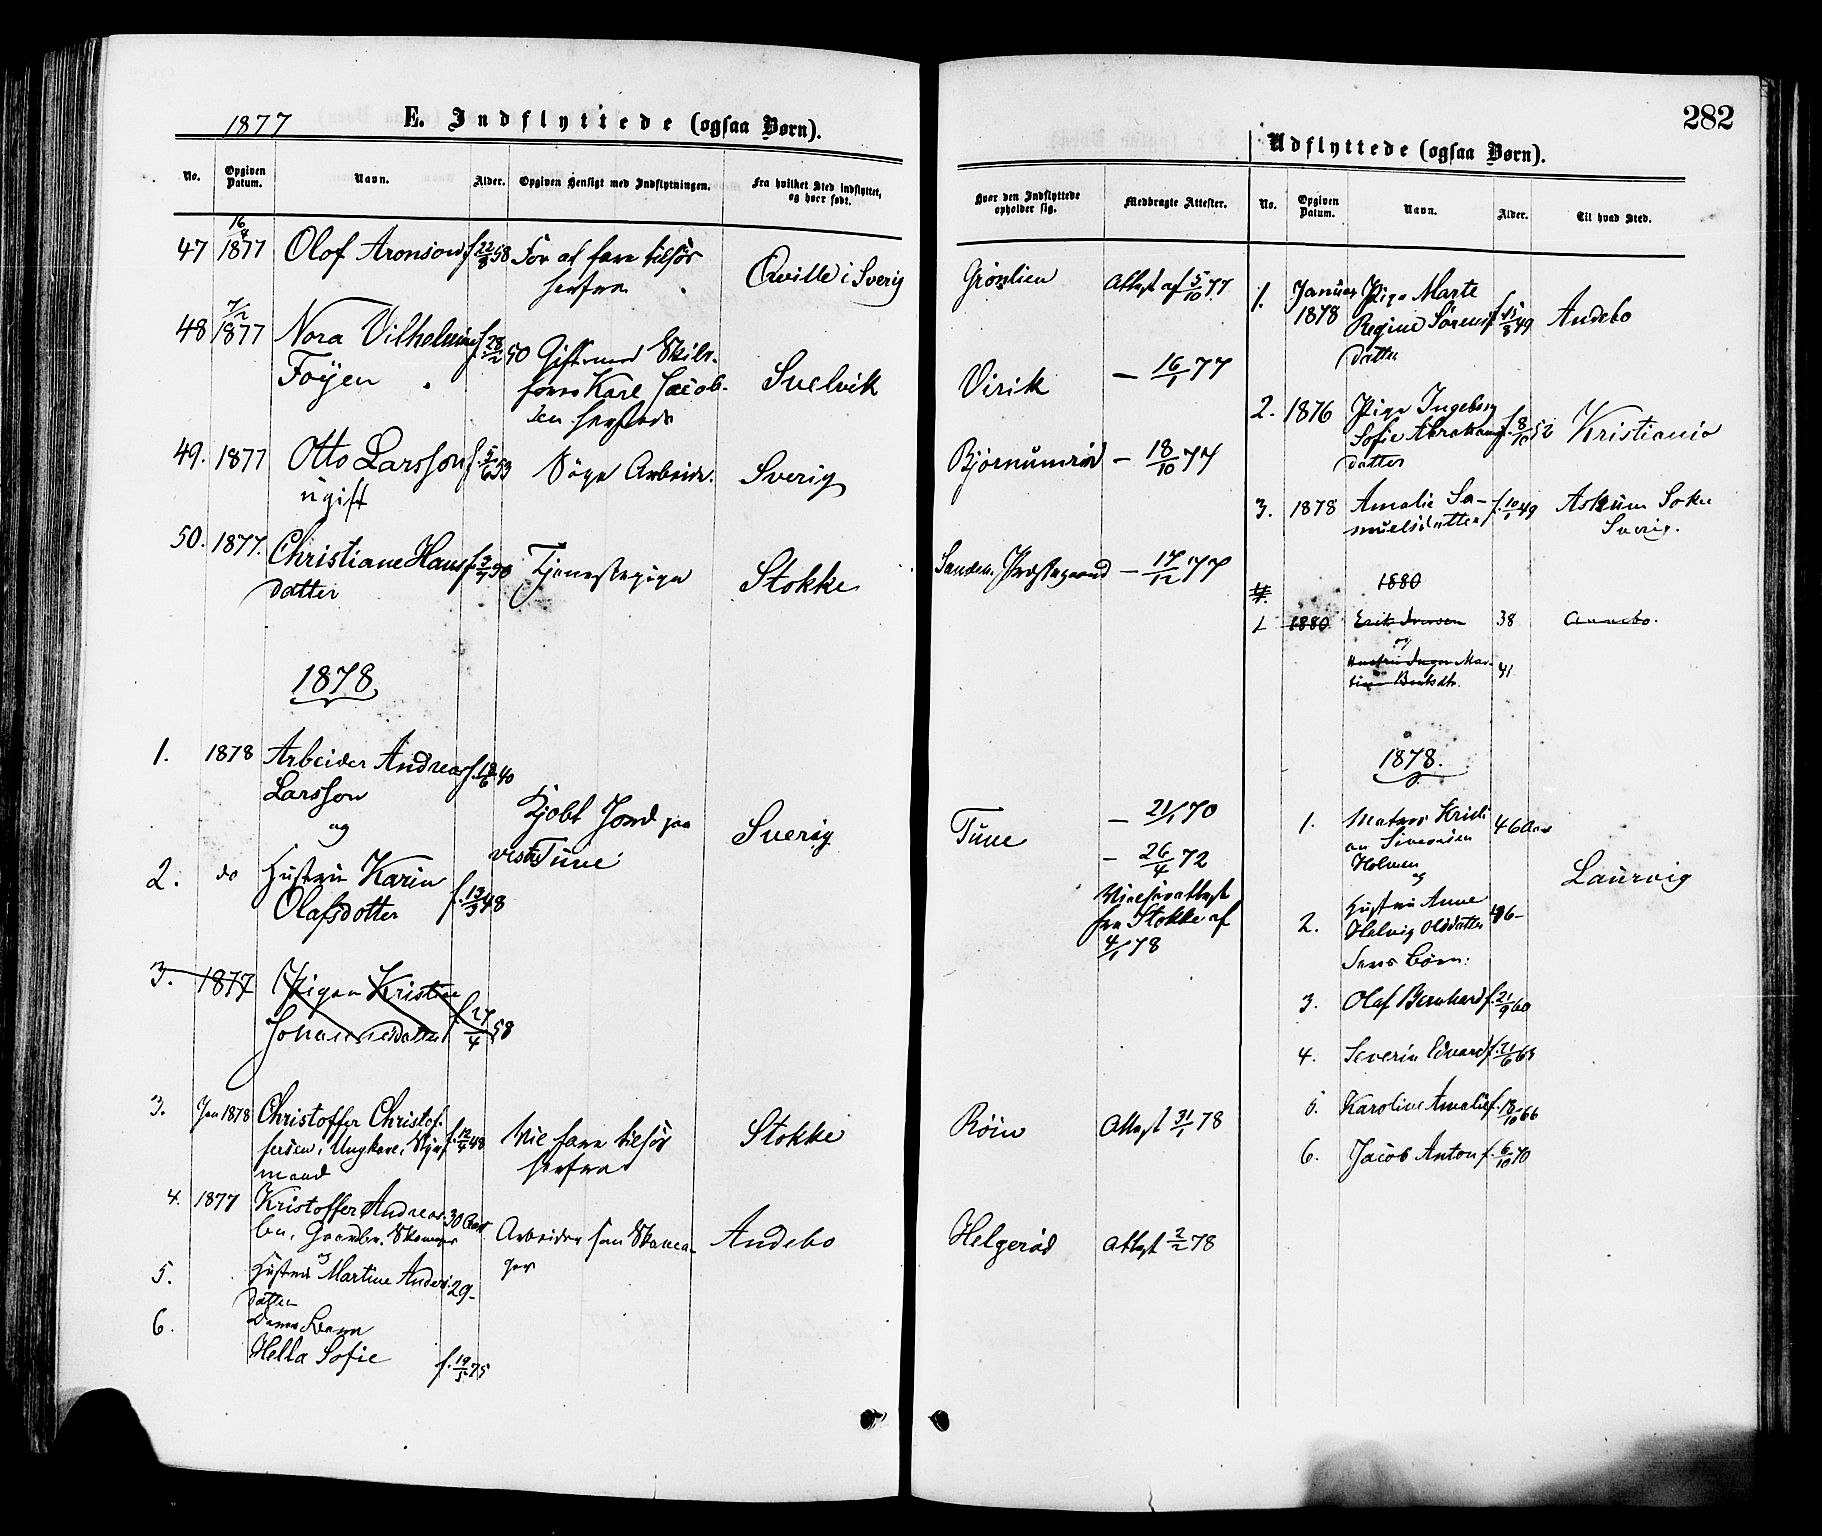 282
1877 E. Indflyttede (ogsaa Børn).
No. Opgiven Datum. Navn. Alder. Opgiven Hensigt med Indflytningen. Fra hvilket Sted indflyttet, og hvor født. Hvor den Indflyttede opholder sig. Medbragte Attester.
47 16/4 1877 Olof Aronson f 22/8 58 For at fare tilsös Qville i Sverig Grønlien Attest af 5/10 77.
herfra
48 7/2 1877 Nora Vilhelmine f. 28/2 50 Gift med Skibs- Svelvik Virik — 16/1 77
Föyen Karl Jacob-
sen hersteds
49. 1877 Otto Larsson f. 5/6 53 Söge Arbeide. Sverig Bjørnumrød — 18/10 77
ugift
50. 1877. Christiane Hans f. 50 Tjenestepige Stokke Sandeh. Præstegaard — 17/12 77
datter
1878
1. 1878 Arbeider Andreas f. 18/6 40
Larsson
og Kjöbt Jord paa Sverig Tune — 21/1 70
vestre Tune — 26/4 72
2. do Hustru Karin f. 13/3 48
Olafsdotter
fra Stokke af
4/1 78
3. 1877 Pigen Kristine f 27/4 58
3. Jan 1878 Christoffer Christof- f. 12/4 48 Vil fare tilsös Stokke Röin Attest 31/1 78
fersen, Ungkarl, Styr- herfra
mand
4. 1877 Kristoffer Andreas- 30 Aar Arbeider som Skoma- Andebo Helgerød Attest 2/2 78
sen, Gaardbr. Skomager ger
og
5. Hustru Martine Anders- 29-
datter
6. Deres Barn
Hella Sofie f. 19/5 75
Udflyttede (ogsaa Børn).
No. Opgiven Datum. Navn. Alder. Til hvad Sted.
1. Januar 1878 Pige Marte Andebo
Regine Sørens f. 15/8 49
datter
2. 1876 Pige Ingeborg Kristiania
Sofie Abrahams f. 8/10 52
datter
3. 1878 Amalie Sa- f. 10/1 49 Askum Sokn
muelsdatter Sverig.
1880
1 1880 Erik Iversen 38 Annebo.
og
Hustru Inger Mar- 41
1878.
1. Matros Kristi 46 Aar
an Siversen
Holmen
og Laurvig
2. Hustru Anne 46-
Helvig Olsdatter
Deres Börn:
3. Olaf Bernhard f. 21/9 60
4. Severin Edvard f. 21/6 63
5. Karoline Amalie f. 18/10 66
6. Jacob Anton f. 6/10 70